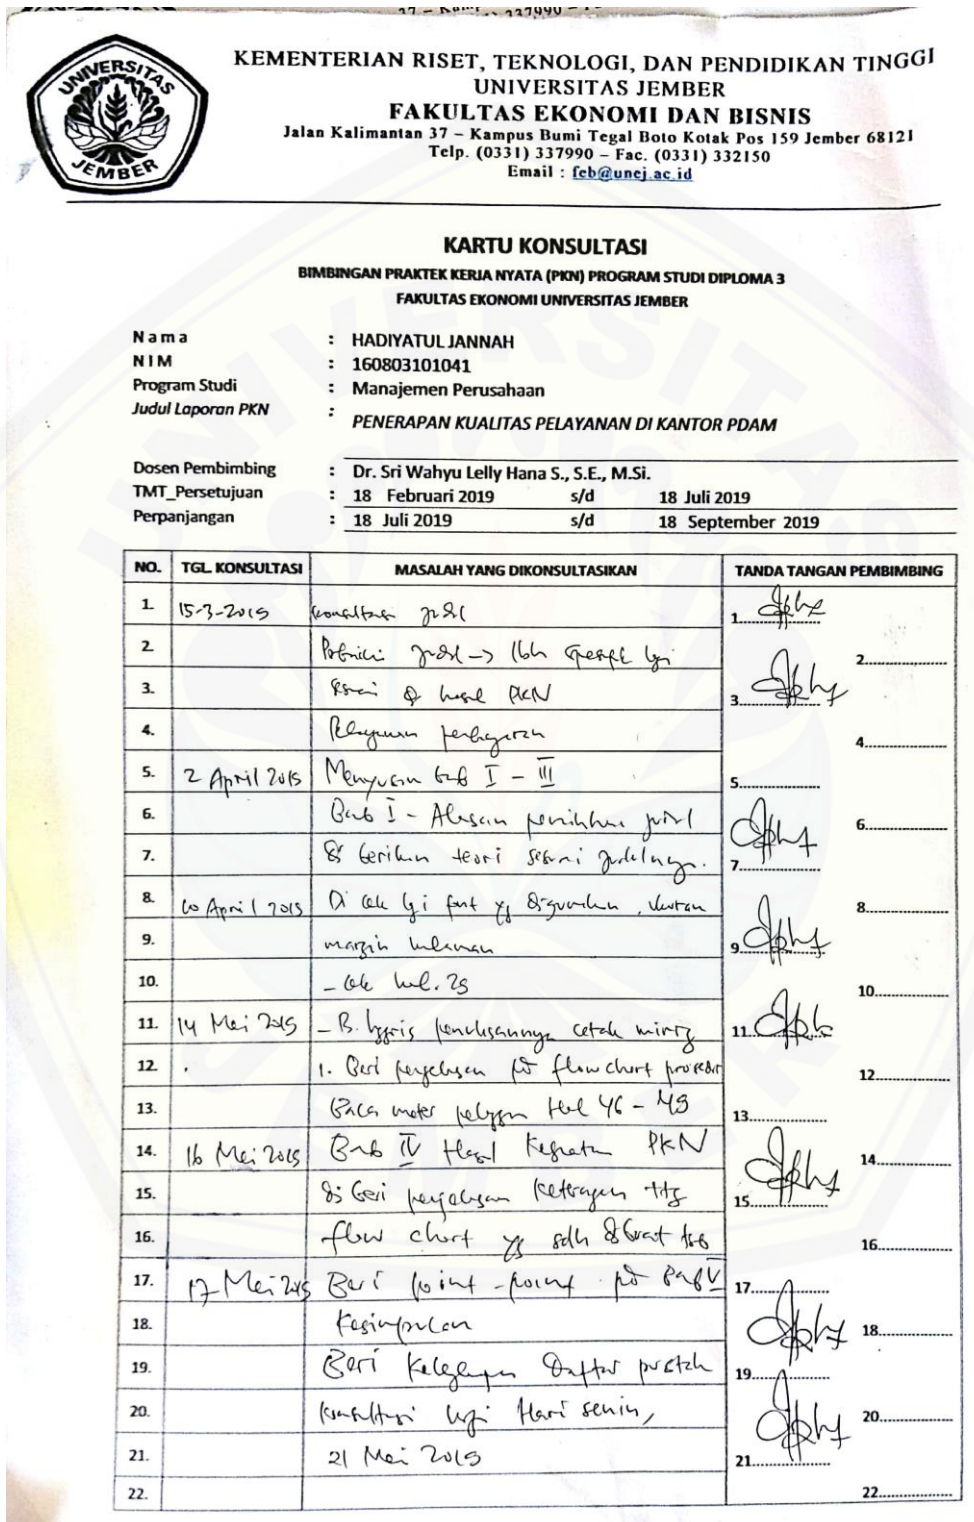 UNIVERSITAS
JEMBER
KEMENTERIAN RISET, TEKNOLOGI, DAN PENDIDIKAN TINGGI
UNIVERSITAS JEMBER
FAKULTAS EKONOMI DAN BISNIS
Jalan Kalimantan 37 – Kampus Bumi Tegal Boto Kotak Pos 159 Jember 68121
Telp. (0331) 337990 – Fac. (0331) 332150
Email : feb@unej.ac.id
KARTU KONSULTASI
BIMBINGAN PRAKTEK KERJA NYATA (PKN) PROGRAM STUDI DIPLOMA 3
FAKULTAS EKONOMI UNIVERSITAS JEMBER
N a m a : HADIYATUL JANNAH
N I M : 160803101041
Program Studi : Manajemen Perusahaan
Judul Laporan PKN : PENERAPAN KUALITAS PELAYANAN DI KANTOR PDAM
Dosen Pembimbing : Dr. Sri Wahyu Lelly Hana S., S.E., M.Si.
TMT_Persetujuan : 18 Februari 2019 s/d 18 Juli 2019
Perpanjangan : 18 Juli 2019 s/d 18 September 2019
NO. TGL. KONSULTASI MASALAH YANG DIKONSULTASIKAN TANDA TANGAN PEMBIMBING
1. 15-3-2019 Konsultasi judul 1
2. judul -> lbh lgi 2
3. hasil PKN 3
4. 4
5. 2 April 2019 Menyusun bab I - III 5
6. Bab I - Alasan pemilihan judul 6
7. di berikan teori sesuai judulnya. 7
8. April 2019 Di cek lgi font yg digunakan, ukuran 8
9. margin halaman 9
10. - cek hal. 29 10
11. 14 Mei 2019 - B. Inggris penulisannya cetak miring 11
12. 1. Beri penjelasan pd flow chart prosedur 12
13. Baca meter Hal 46 - 49 13
14. 16 Mei 2019 Bab IV Hasil Kegiatan PKN 14
15. di beri penjelasan keterangan ttg 15
16. flow chart yg sdh dibuat tsb 16
17. 17 Mei 2019 Beri point - point pd Bab V 17
18. Kesimpulan 18
19. Beri Daftar pustak 19
20. konsultasi lagi Hari senin, 20
21. 21 Mei 2019 21
22. 22